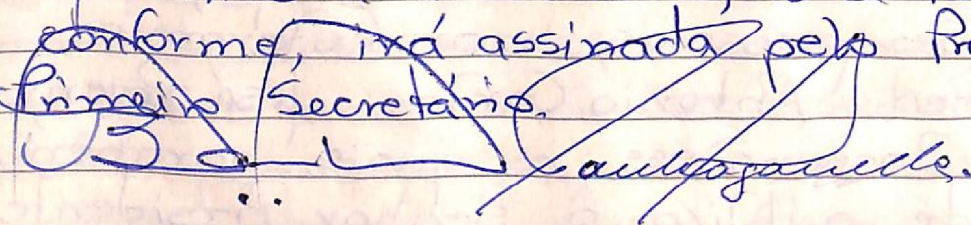 conforme, irá assinada pelo Pr
Primeiro Secretário.